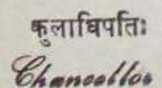 कुलाधिपतिः
Chancellor